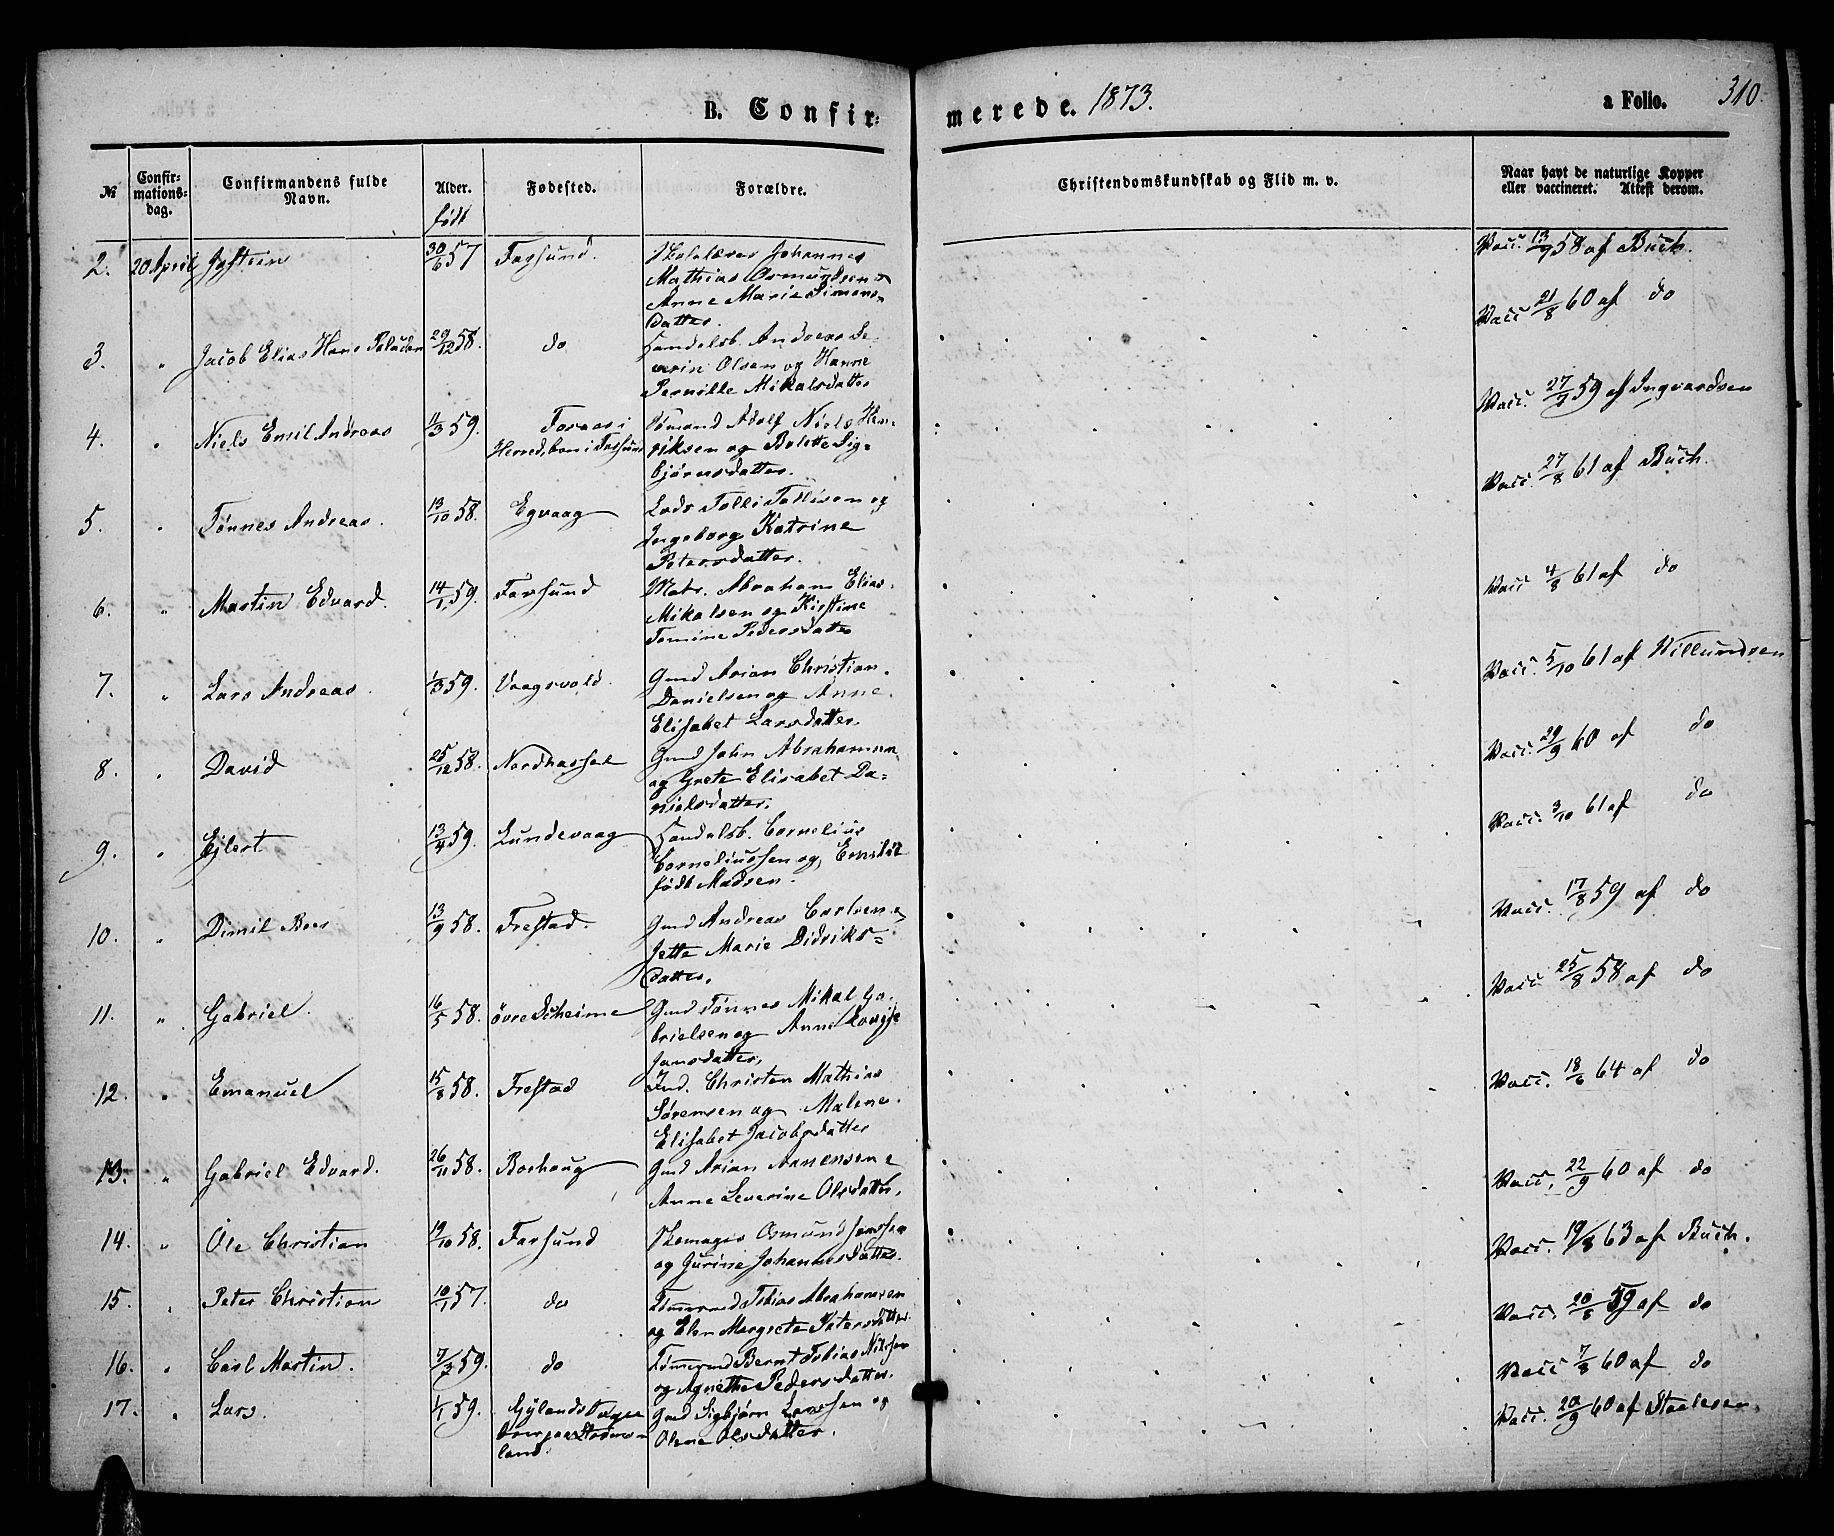 B. Confir- merede. 1873. a Folio. 310.
№ Confir-mations-dag. Confirmandens fulde Navn. Alder. født Fødested. Forældre. Christendomskundskab og Flid m. v. Naar havt de naturlige Kopper eller vaccineret. Attest derom.
2. 20 April Jystein 30/6 57 Farsund. Skolelærer Johannes Vacc. 13/9 58 af Buch.
Mathias Osmundsen &
Anne Marie Simons-
datter.
3. " Jacob Elias Hans Paludan 29/12 58. do Handelsb. Andreas Se- Vacc 21/8 60 af do
verin Olsen og Hanne
Pernille Mikalsdatter
4. " Niels Emil Andreas 11/3 59. i Adolf Niels Hen- Vacc. 27/9 59 af Ingvardsen
Herred, boer i Farsund riksen og Bolette Sig-
bjørnsdatter.
5. " Tønnes Andreas. 13/10 58. Egvaag Lods Tolli Tollisen og Vacc. 27/8 61 af Buch.
Ingeborg Katrine
Petersdatter.
6. " Martin Edvard. 14/1 59. Farsund Matr. Abraham Elias Vacc 4/8 61 af do
Mikalsen og Kirstine
Tomine Pedersdatter
7. " Lars Andreas. 1/3 59. Vaagsvold. Gmd Arian Christian Vacc. 5/10 61 af Villumdsen
Danielsen og Anne
Elisabet Larsdatter.
8. " David 25/12 58. Nordhassel Gmd John Abrahamsen Vacc. 29/9 60 af do
og Grete Elisabet Da-
nielsdatter.
9. " Ejlert 13/4 59. Lundevaag Handelsb. Cornelius Vacc. 3/10 61 af do
Corneliussen og Emilie
født Madsen.
10. " Dimil Bees 13/9 58. Frestad. Gmd Andreas Carlsen & Vacc. 17/8 59 af do
Jette Marie Didriks-
datter.
11. " Gabriel. 16/5 58. övre Skeime Gmd Tønnes Mikal Ga- Vacc. 25/8 58 af do
brielsen og Anne Lovise
Jansdatter.
12. " Emanuel 15/8 58. Frestad Ind. Christen Mathias Vacc. 18/6 64 af do
Sørensen og Malene
Elisabet Jacobsdatter
13. " Gabriel Edvard. 26/11 58. Borhaug Gmd Arian Arnensen & Vacc. 22/9 60 af do
Anne Severine Olsdatter.
14. " Ole Christian 19/10 58. Farsund Skomager Osmund Jonssen Vacc. 19/8 63 af Buch.
og Gurine Johannesdatter.
15. " Peter Christian 10/1 57. do Tømmermd Tobias Abrahamsen Vacc. 20/8 59 af do
og Elen Margrete Petersdatter
16. " Carl Martin. 7/2 59. do Tømmermd Bernt Tobias Nilssen Vacc 7/8 60 af do
og Agnethe Pedersdatter.
17. " Lars. 1/1 59. Gylands Sogn Gmd Sigbjørn Larssen og Vacc. 20/9 60 af Staalesen.
Olene Olsdatter.
land.